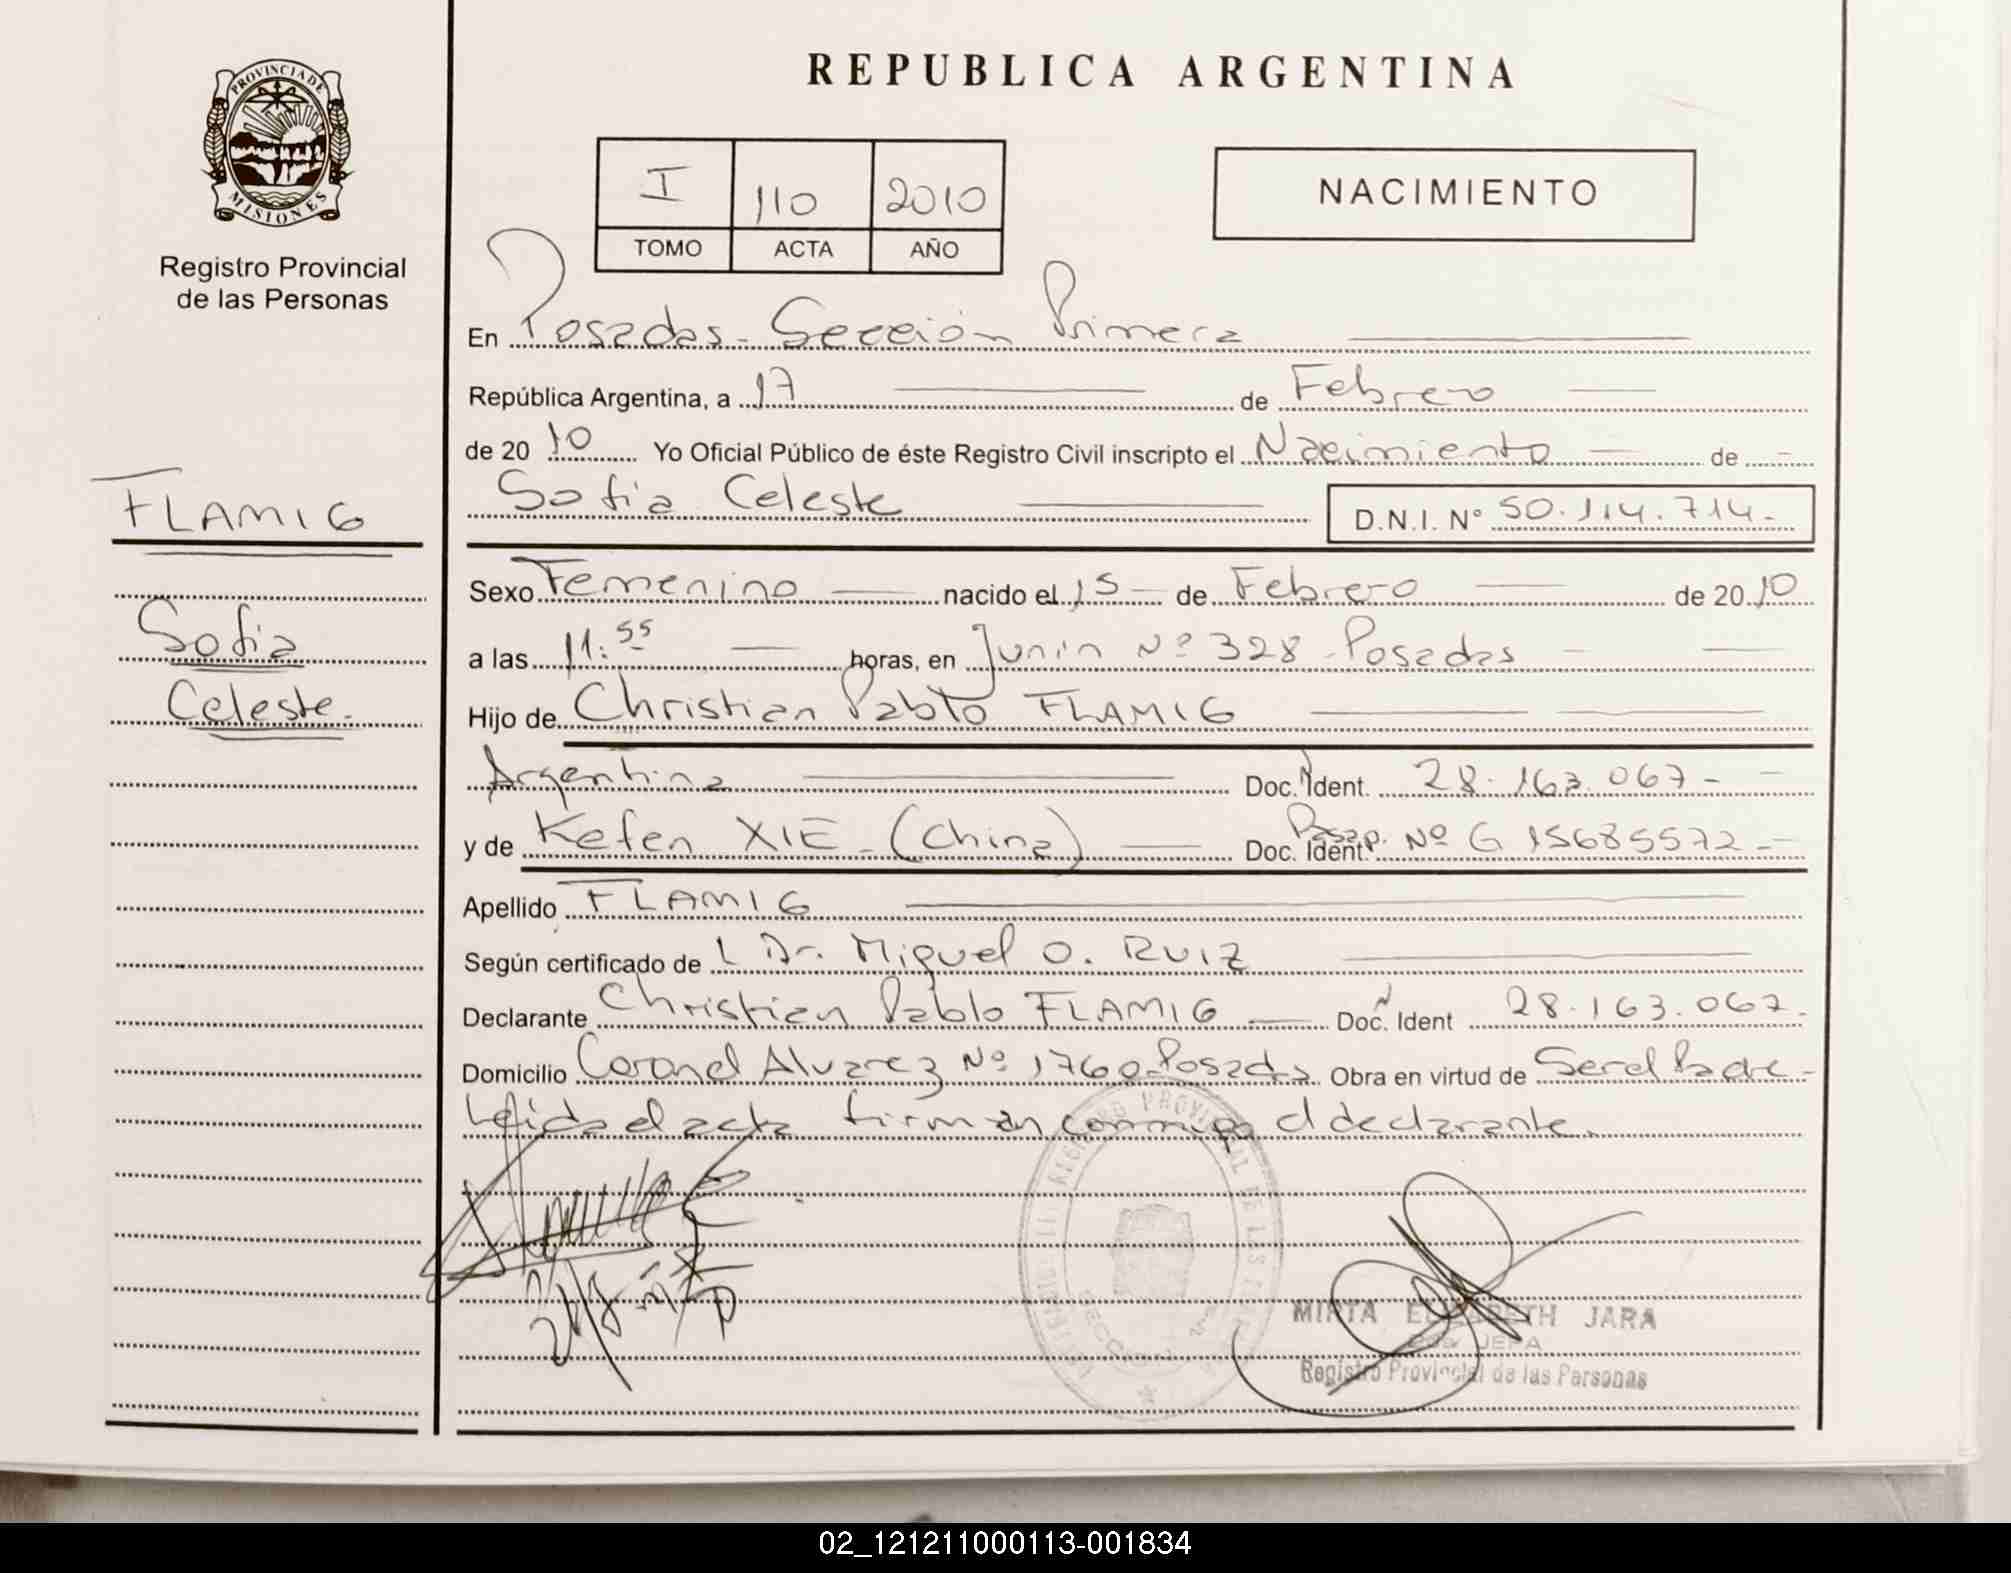 PROVINCIA DE
MISIONES
Registro Provincial
de las Personas
FLAMIG
Sofia
Celeste.
REPUBLICA ARGENTINA
I 110 2010
TOMO ACTA AÑO
NACIMIENTO
En Posadas - Sección Primera
República Argentina, a 17 de Febrero
de 20 10 Yo Oficial Público de éste Registro Civil inscripto el Nacimiento de
Sofia Celeste D.N.I. N° 50.114.714.-
Sexo Femenino nacido el 15 de Febrero de 20 10
a las 11:55 horas, en Junín Nº 328 - Posadas
Hijo de Christian Pablo FLAMIG
Argentina Doc. Ident. 28.163.067-
y de Kefen XIE - (China) Doc. Ident. Pasap. Nº G 15685572-
Apellido FLAMIG
Según certificado de L Dr. Miguel O. RUIZ
Declarante Christian Pablo FLAMIG Doc. Ident 28.163.067.
Domicilio Coronel Alvarez Nº 1760-Posadas Obra en virtud de Ser el Padre-
Leída el acta firman conmigo el declarante.
REGISTRO PROVINCIAL DE LAS
MIRTA ELIZABETH JARA
JEFA
Registro Provincial de las Personas
02_121211000113-001834